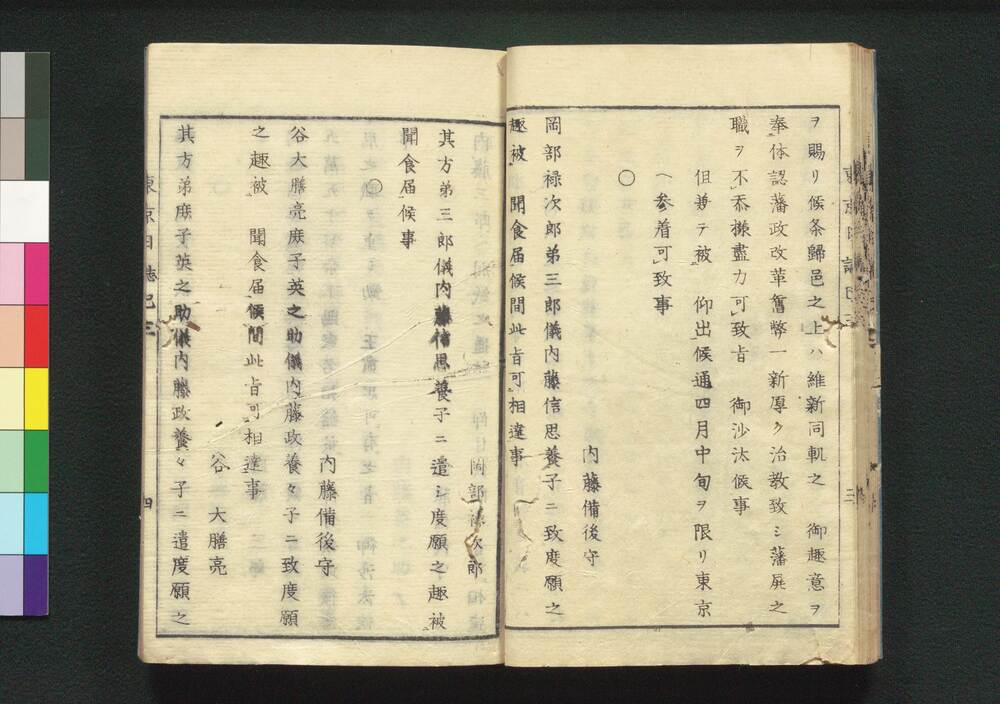 ヲ賜リ候条歸邑之上ハ維新同軌之　御趣意ヲ
奉体認藩政改革奮弊一新厚ク治教致シ藩屏之
職ヲ不忝様盡力可致旨　御沙汰候事
但兼テ被　仰出候通四月中旬ヲ限リ東京
ヘ参着可致事
○
内藤備後守
岡部禄次郎弟三郎儀内藤信思養子ニ致度願之
趣被　聞食届候間此旨可相達事
岡部禄次郎
其方弟三郎儀内藤信思養子ニ遣シ度願之趣被
聞食届候事
○
内藤備後守
谷大膳亮庶子英之助儀内藤政養々子ニ致度願
之趣被　聞食届候間此旨可相達事
谷大膳亮
其方弟庶子英之助儀内藤政養々子ニ遣度願之
東京日誌
四
三